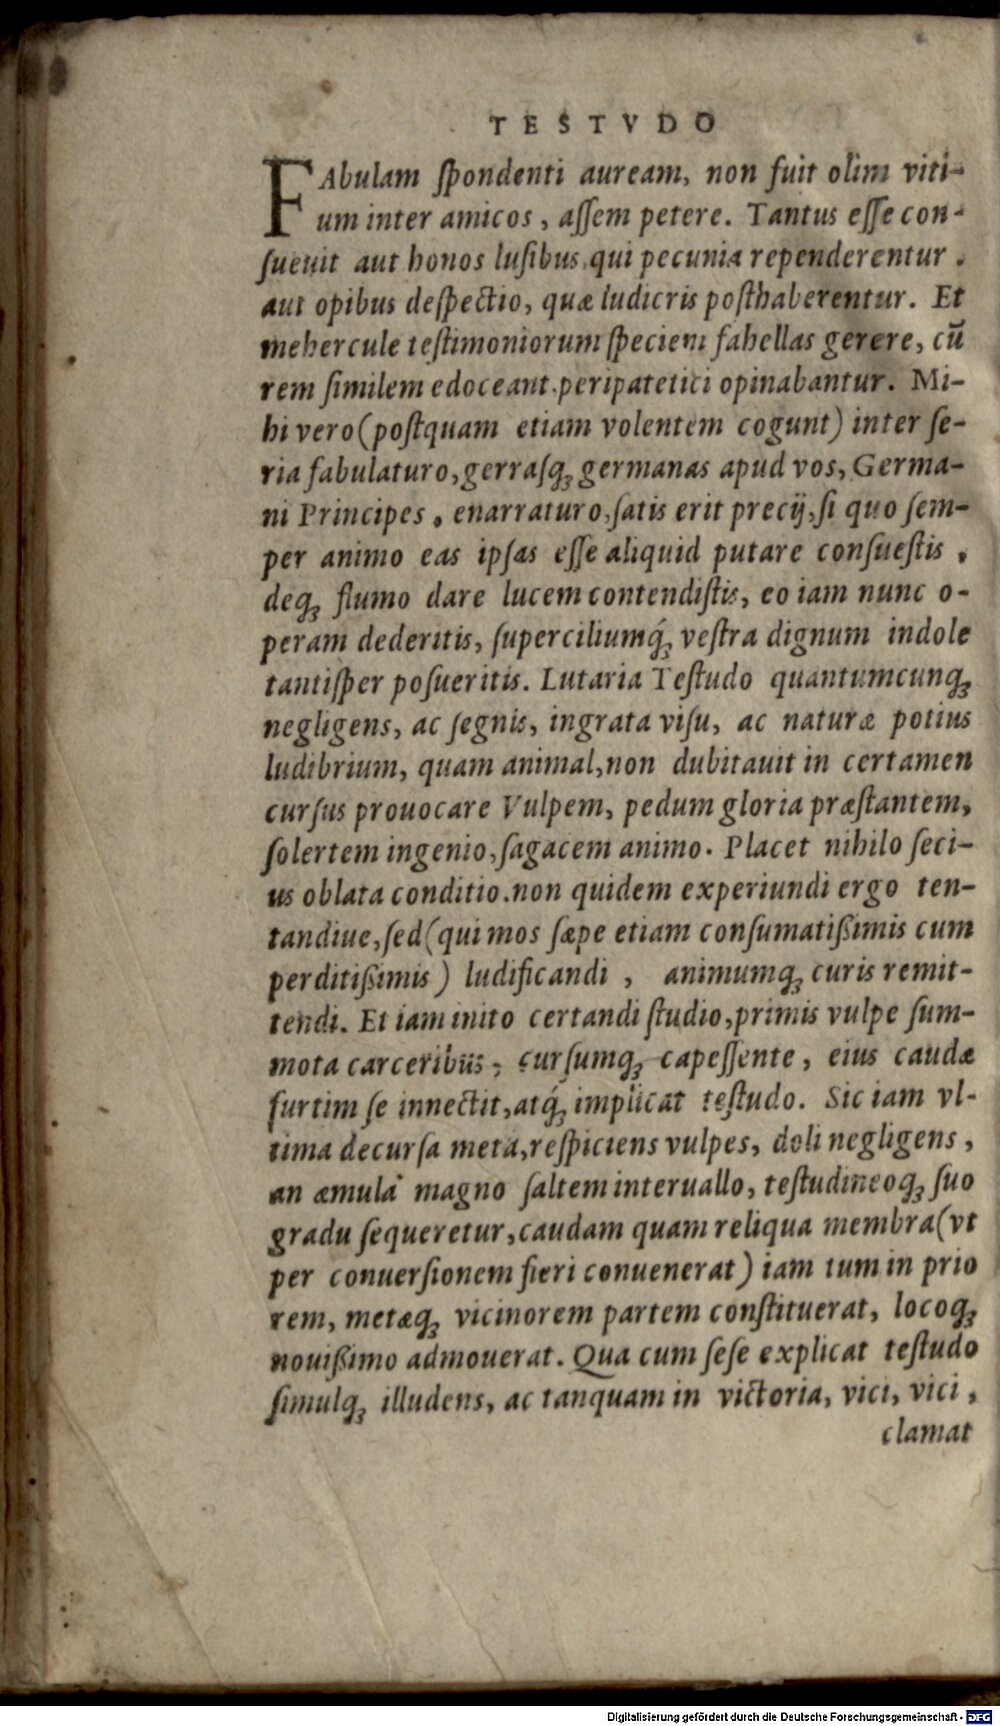 TESTVDO
FAbulam ſpondenti auream, non fuit olim viti-
um inter amicos, aſſem petere. Tantus eſſe con-
ſueuit aut honos luſibus, qui pecunia rependerentur.
aut opibus deſpectio, quæ ludicris poſthaberentur. Et
mehercule teſtimoniorum ſpeciem fabellas gerere, cū
rem ſimilem edoceant, peripatetici opinabantur. Mi-
hi vero (poſtquam etiam volentem cogunt) inter ſe-
ria fabulaturo, gerraſqꝫ germanas apud vos, Germa-
ni Principes, enarraturo, ſatis erit precij, ſi quo ſem-
per animo eas ipſas eſſe aliquid putare conſueſtis,
deqꝫ flumo dare lucem contendiſtis, eo iam nunc o-
peram dederitis, ſuperciliumq́ꝫ veſtra dignum indole
tantiſper poſueritis. Lutaria Teſtudo quantumcunqꝫ
negligens, ac ſegnis, ingrata viſu, ac naturæ potius
ludibrium, quam animal, non dubitauit in certamen
curſus prouocare Vulpem, pedum gloria præſtantem,
ſolertem ingenio, ſagacem animo. Placet nihilo ſeci-
us oblata conditio. non quidem experiundi ergo ten-
tandiue, ſed (qui mos ſæpe etiam conſumatißimis cum
perditißimis) ludificandi, animumqꝫ curis remit-
tendi. Et iam inito certandi ſtudio, primis vulpe ſum-
mota carceribus, curſumqꝫ capeſſente, eius caudæ
furtim ſe innectit, atq́ꝫ implicat teſtudo. Sic iam vl-
tima decurſa meta, reſpiciens vulpes, doli negligens,
an æmula magno ſaltem interuallo, teſtudineoqꝫ ſuo
gradu ſequeretur, caudam quam reliqua membra (vt
per conuerſionem fieri conuenerat) iam tum in prio
rem, metæqꝫ vicinorem partem conſtituerat, locoqꝫ
nouißimo admouerat. Qua cum ſeſe explicat teſtudo
ſimulqꝫ illudens, ac tanquam in victoria, vici, vici,
clamat
Digitalisierung gefördert durch die Deutsche Forschungsgemeinschaft - DFG